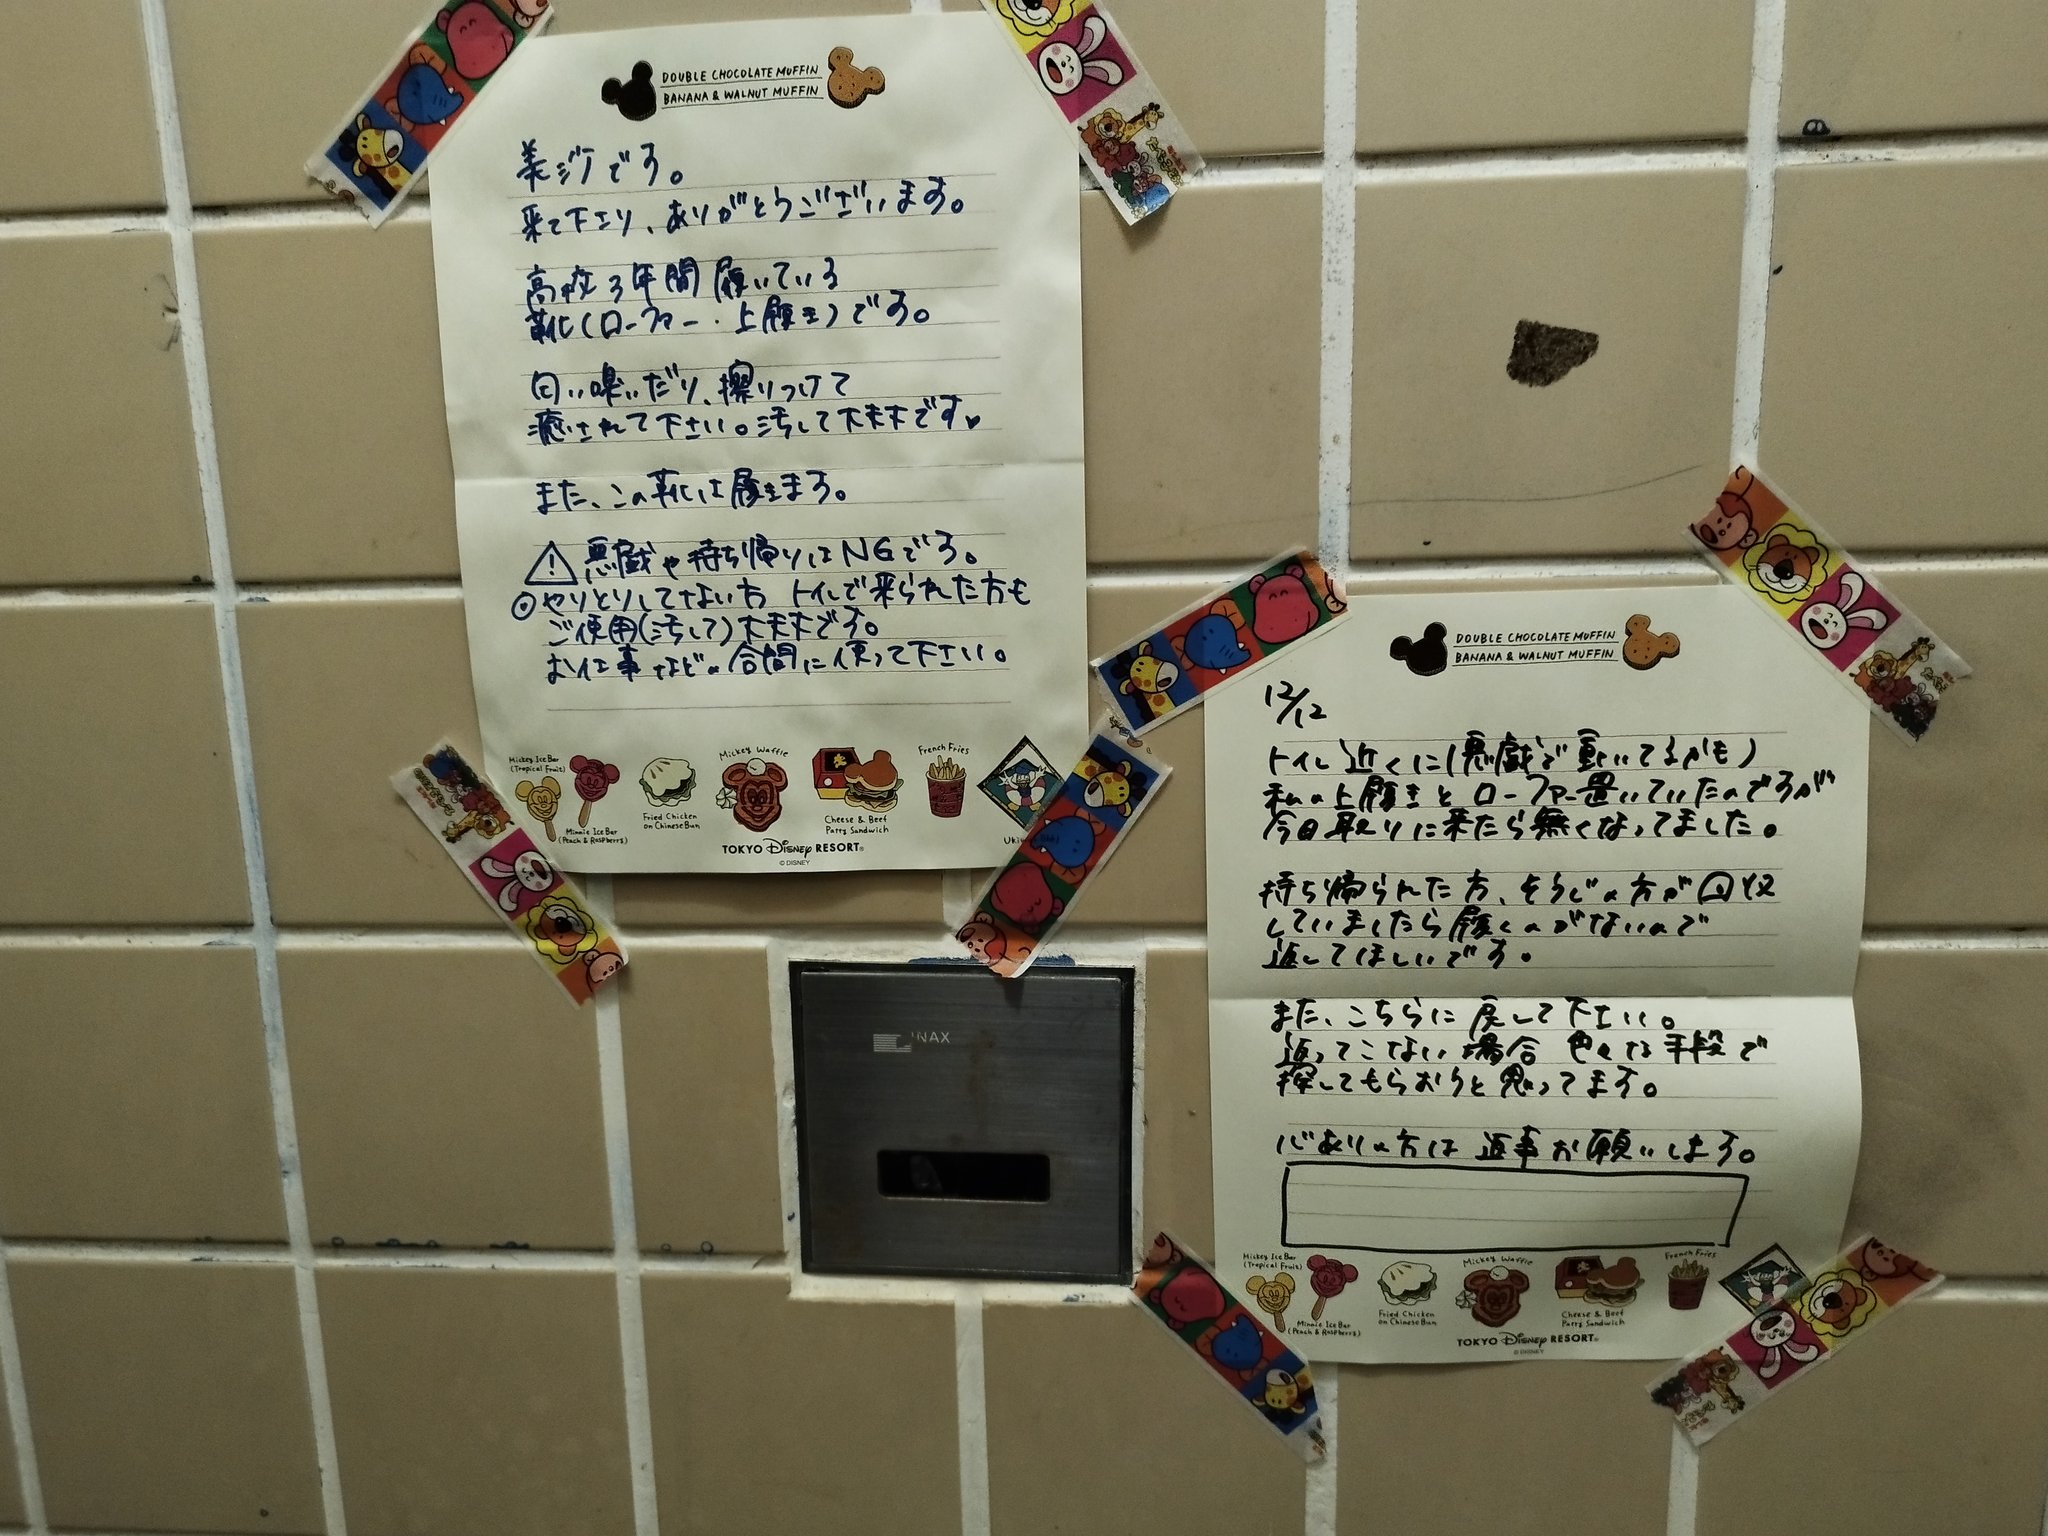 DOUBLE CHOCOLATE MUFFIN
BANANA & WALNUT MUFFIN
来て下さり、ありがとうございます。
高校3年間履いている
靴(ローファー・上履き)です。
匂い嗅いだり、擦りつけて
癒されて下さい。汚して大丈夫です♥
また、この靴は履きます。
⚠悪戯や持ち帰りはNGです。
◎やりとりしてない方 トイレで来られた方も
ご使用(汚して)大丈夫です。
お仕事などの合間に使って下さい。
Mickey Ice Bar
(Tropical Fruit)
Minnie Ice Bar
(Peach & Raspberry)
Fried Chicken
on Chinese Bun
Mickey Waffle
Cheese & Beef
Patty Sandwich
French Fries
TOKYO Disney RESORT®
© DISNEY
INAX
DOUBLE CHOCOLATE MUFFIN
BANANA & WALNUT MUFFIN
12/12
トイレ近くに(悪戯で動いてるかも)
私の上履きとローファー置いていたのですが
今日取りに来たら無くなってました。
持ち帰られた方、そうじの方が回収
していましたら履くのがないので
返してほしいです。
また、こちらに戻して下さい。
返ってこない場合 色々な手段で
探してもらおうと思ってます。
心ありの方は返事お願いします。
Mickey Ice Bar
(Tropical Fruit)
Minnie Ice Bar
(Peach & Raspberry)
Fried Chicken
on Chinese Bun
Mickey Waffle
Cheese & Beef
Patty Sandwich
French Fries
TOKYO Disney RESORT®
© DISNEY